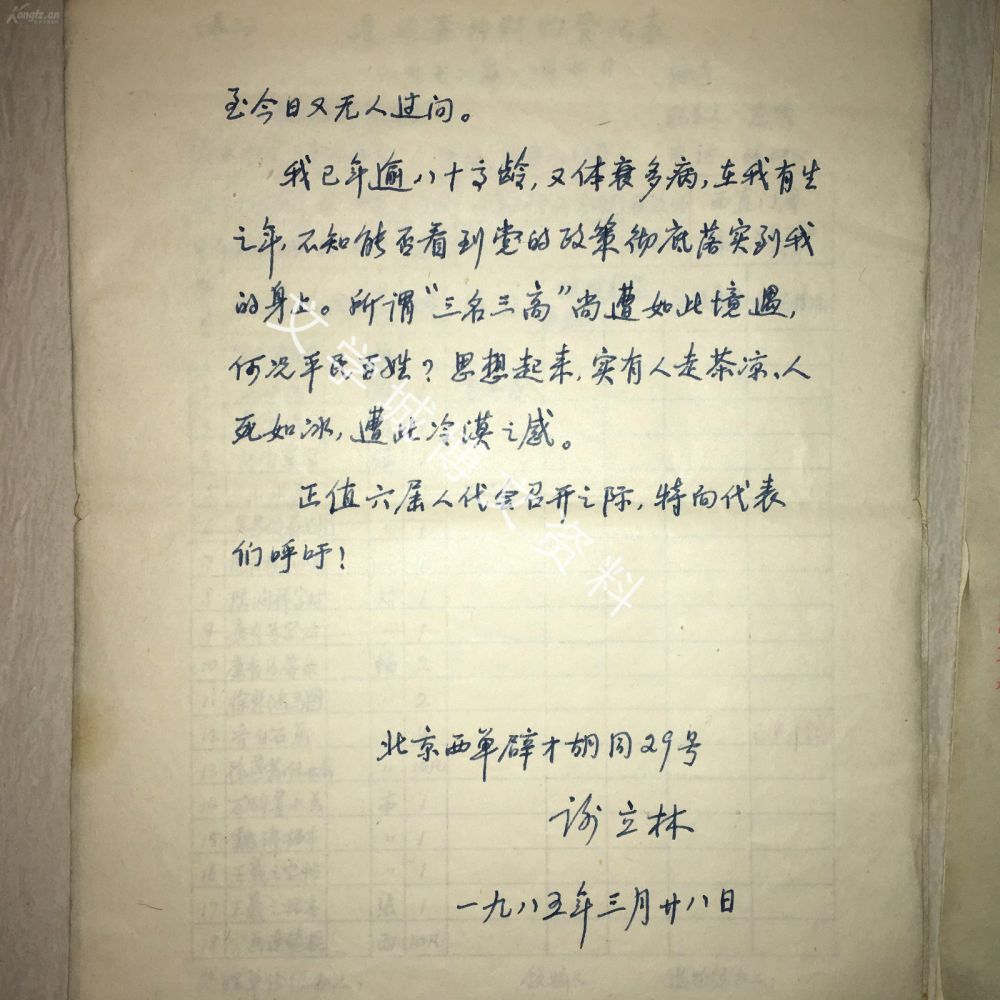 Kongfz.cn
至今日又无人过问。
我已年逾八十高龄,又体衰多病,在我有生
之年,不知能否看到党的政策彻底落实到我
的身上。所谓“三名三高”尚遭如此境遇,
何况平民百姓?思想起来,实有人走茶凉、人
死如冰,遭此冷漠之感。
正值六届人代会召开之际,特向代表
们呼吁!
北京西单辟才胡同29号
谢立林
一九八五年三月廿八日
文学城博史资料